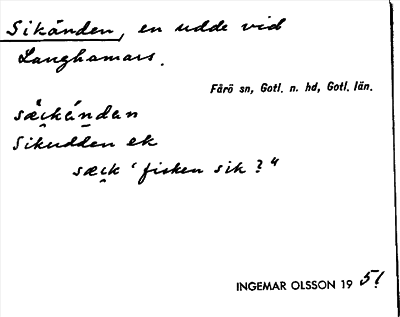 Sikänden, en udde vid
Langhamars.
Fårö sn, Gotl. n. hd, Gotl. län.
sæi̯kǽndan
Sikudden ek
sæi̯k ‘fisken sik?”
INGEMAR OLSSON 1951